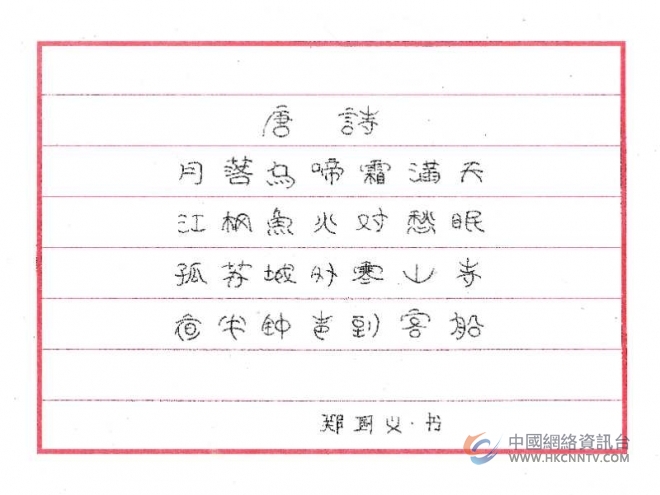 唐 詩
月落烏啼霜滿天
江枫魚火对愁眠
孤苏城外寒山寺
夜半钟声到客船
郑国义·书
中國網絡資訊台
WWW.HKCNNTV.COM